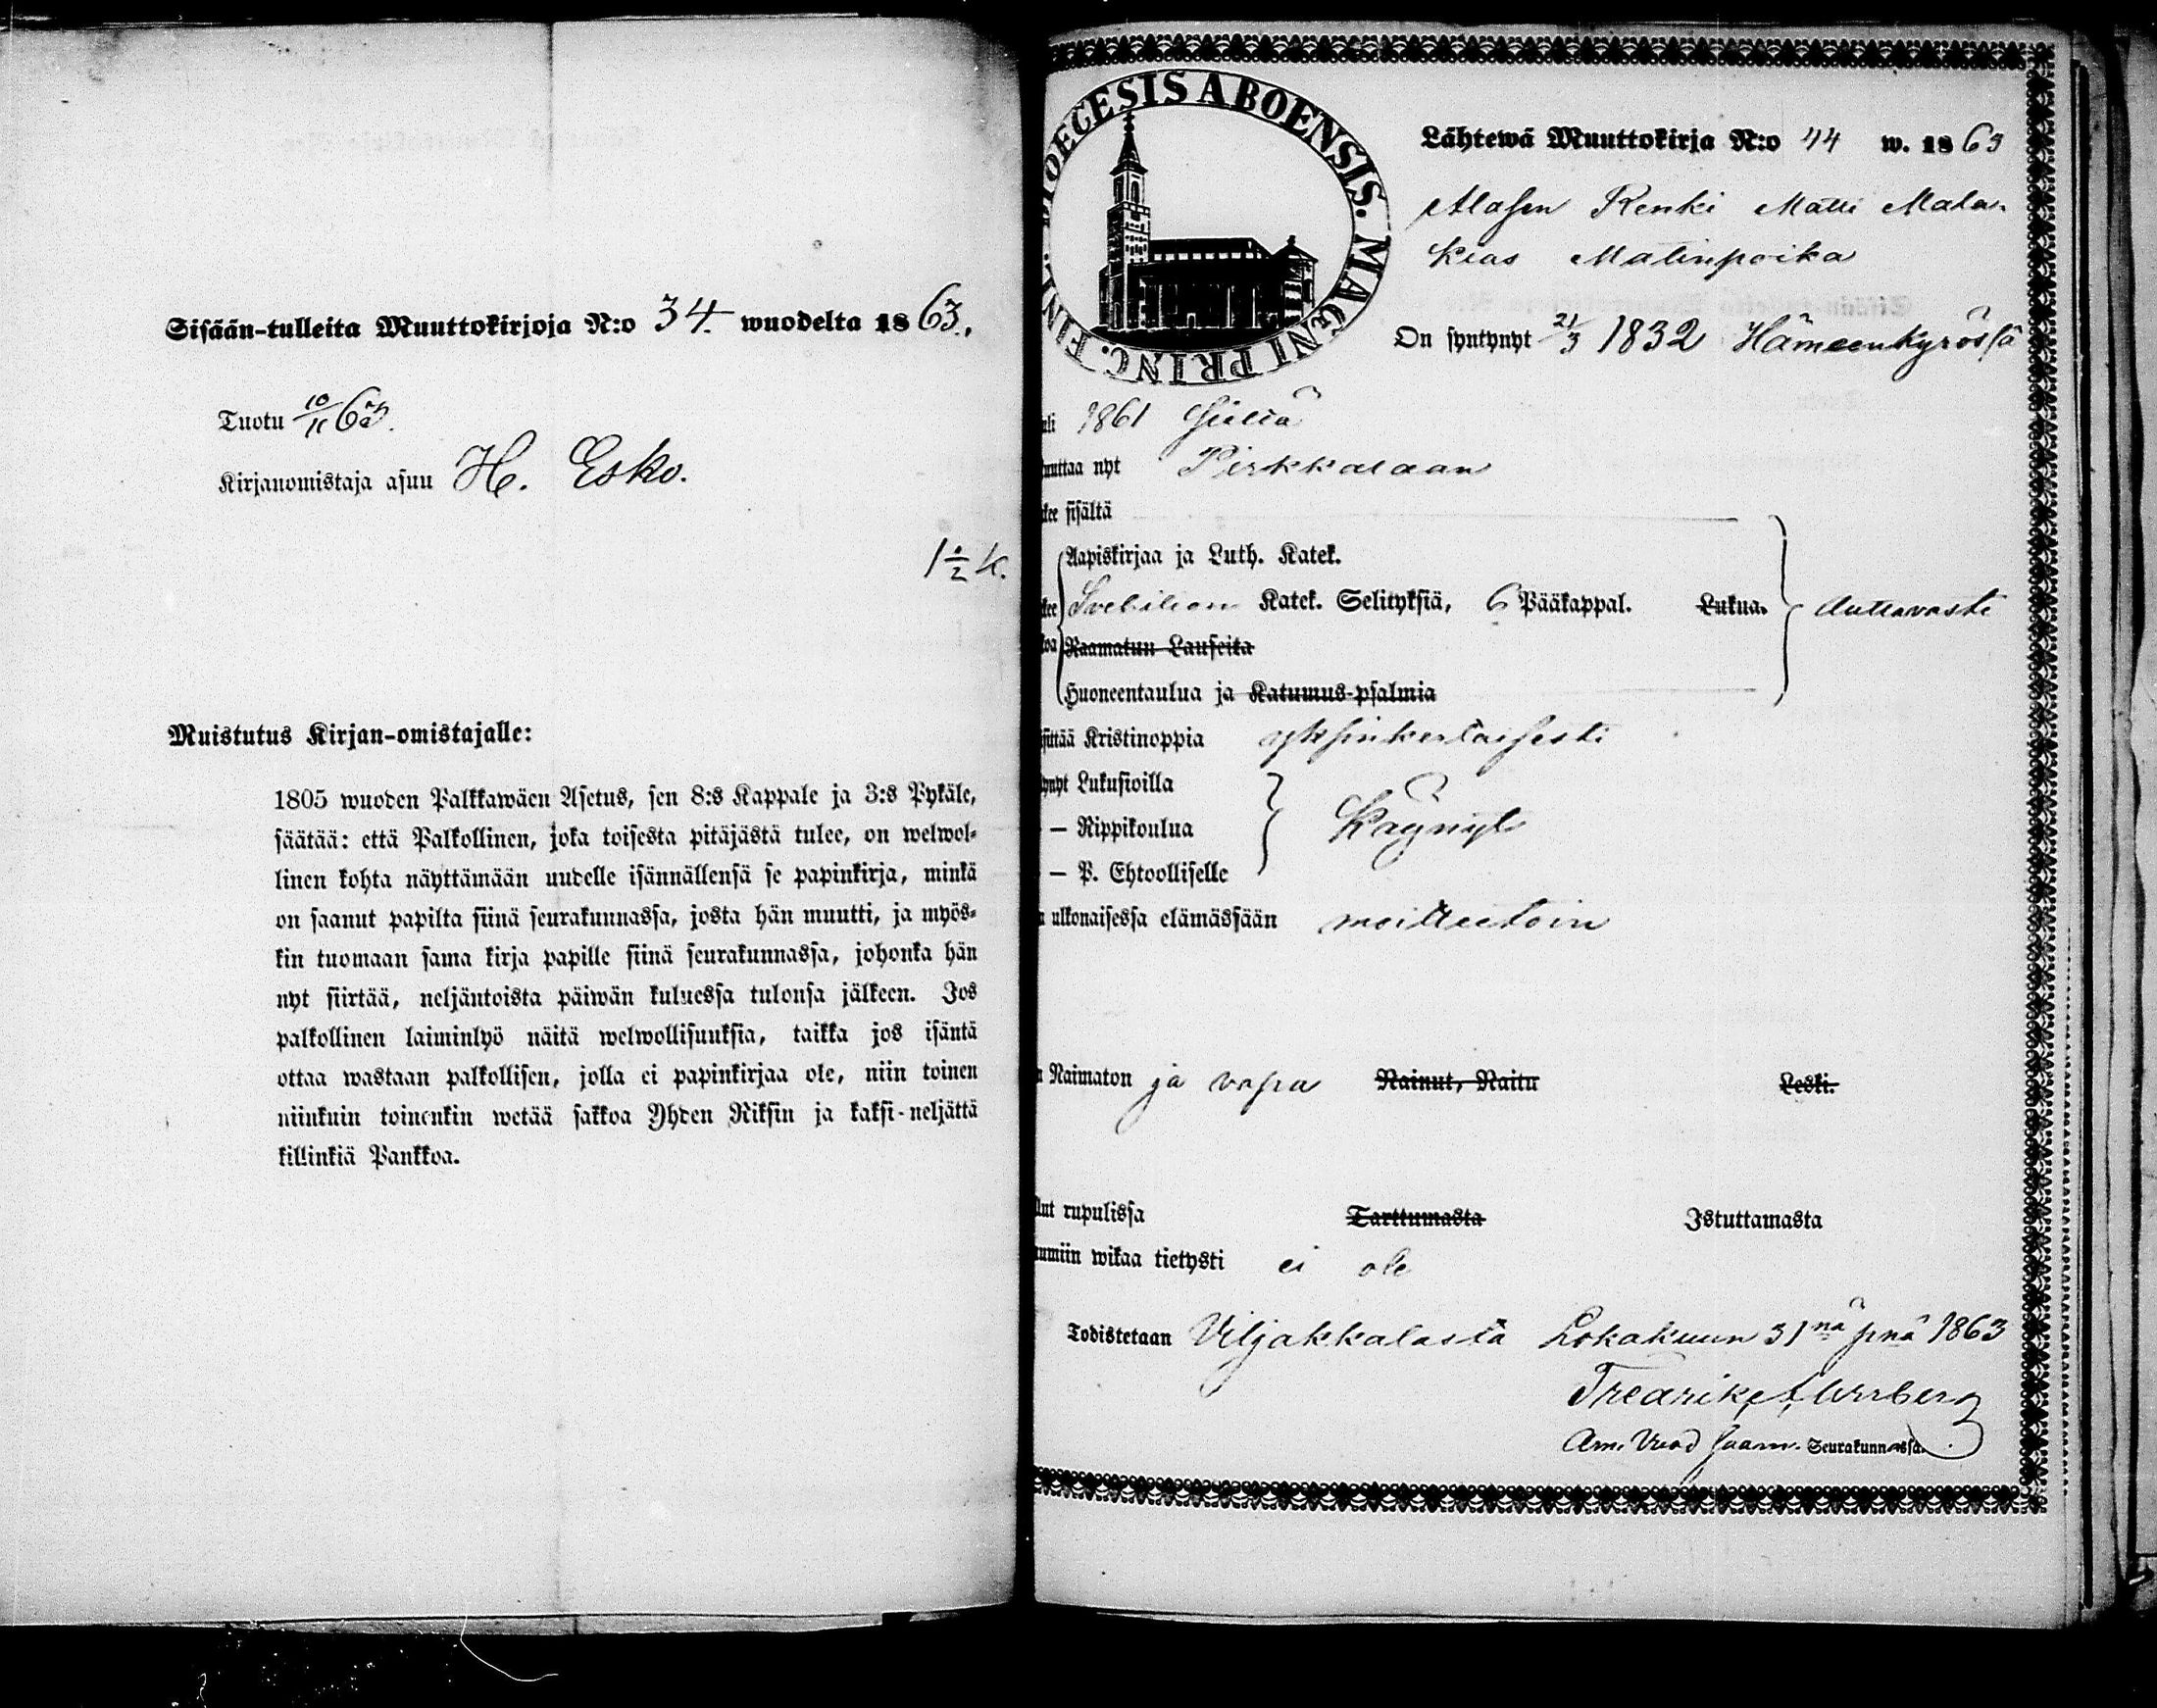 Sisään-tulleita Muuttokirjoja N:o 34. wuodelta 1863.,
Tuotu 10/11 63.
Kirjanomistaja asuu H. Esko.
1 1/2 k.
Muistutus Kirjan-omistajalle:
1805 wuoden Palkkawäen Asetus, sen 8:s Kappale ja 3:s Pykäle,
säätää: että Palkollinen, joka toisesta pitäjästä tulee, on welwol-
linen kohta näyttämään uudelle isännällensä se papinkirja, minkä
on saanut papilta siinä seurakunnassa, josta hän muutti, ja myös-
kin tuomaan sama kirja papille siinä seurakunnassa, johonka hän
nyt siirtää, neljäntoista päiwän kuluessa tulonsa jälkeen. Jos
palkollinen laiminlyö näitä welwollisuuksia, taikka jos isäntä
ottaa wastaan palkollisen, jolla ei papinkirjaa ole, niin toinen
niinkuin toinenkin wetää sakkoa Yhden Riksin ja kaksi-neljättä
killinkiä Pankkoa.
DIOECESIS ABOENSIS. MAGNI PRINC. FINL.
Lähtewä Muuttokirja N:o 44 w. 1863
Alasen Renki Matti Mala-
kias Matinpoika
On syntynyt 21/3 1832 Hämeenkyrössä
uli 1861 sieltä
muuttaa nyt Pirkkalaan
kee sisältä
Aapiskirjaa ja Luth. Katek.
kee Svebilion Katek. Selityksiä, 6 Pääkappal. Lukua. Auttavasti
koa Raamatun Lauseita
Huoneentaulua ja Katumus-psalmia
sittää Kristinoppia yksinkertaisesti
ynyt Lukusioilla
— Rippikoulua Käynyt
— P. Ehtoolliselle
n ulkonaisessa elämässään moitteetoin
n Naimaton ja vapa Nainut, Naitu Leski.
llut rupulissa Tarttumasta Istuttamasta
uumiin wikaa tietysti ei ole
Todistetaan Viljakkalasta Lokakuun 31nä pnä 1863
Fredrik
Arm. Vuod Saarn. Seurakunnassa.